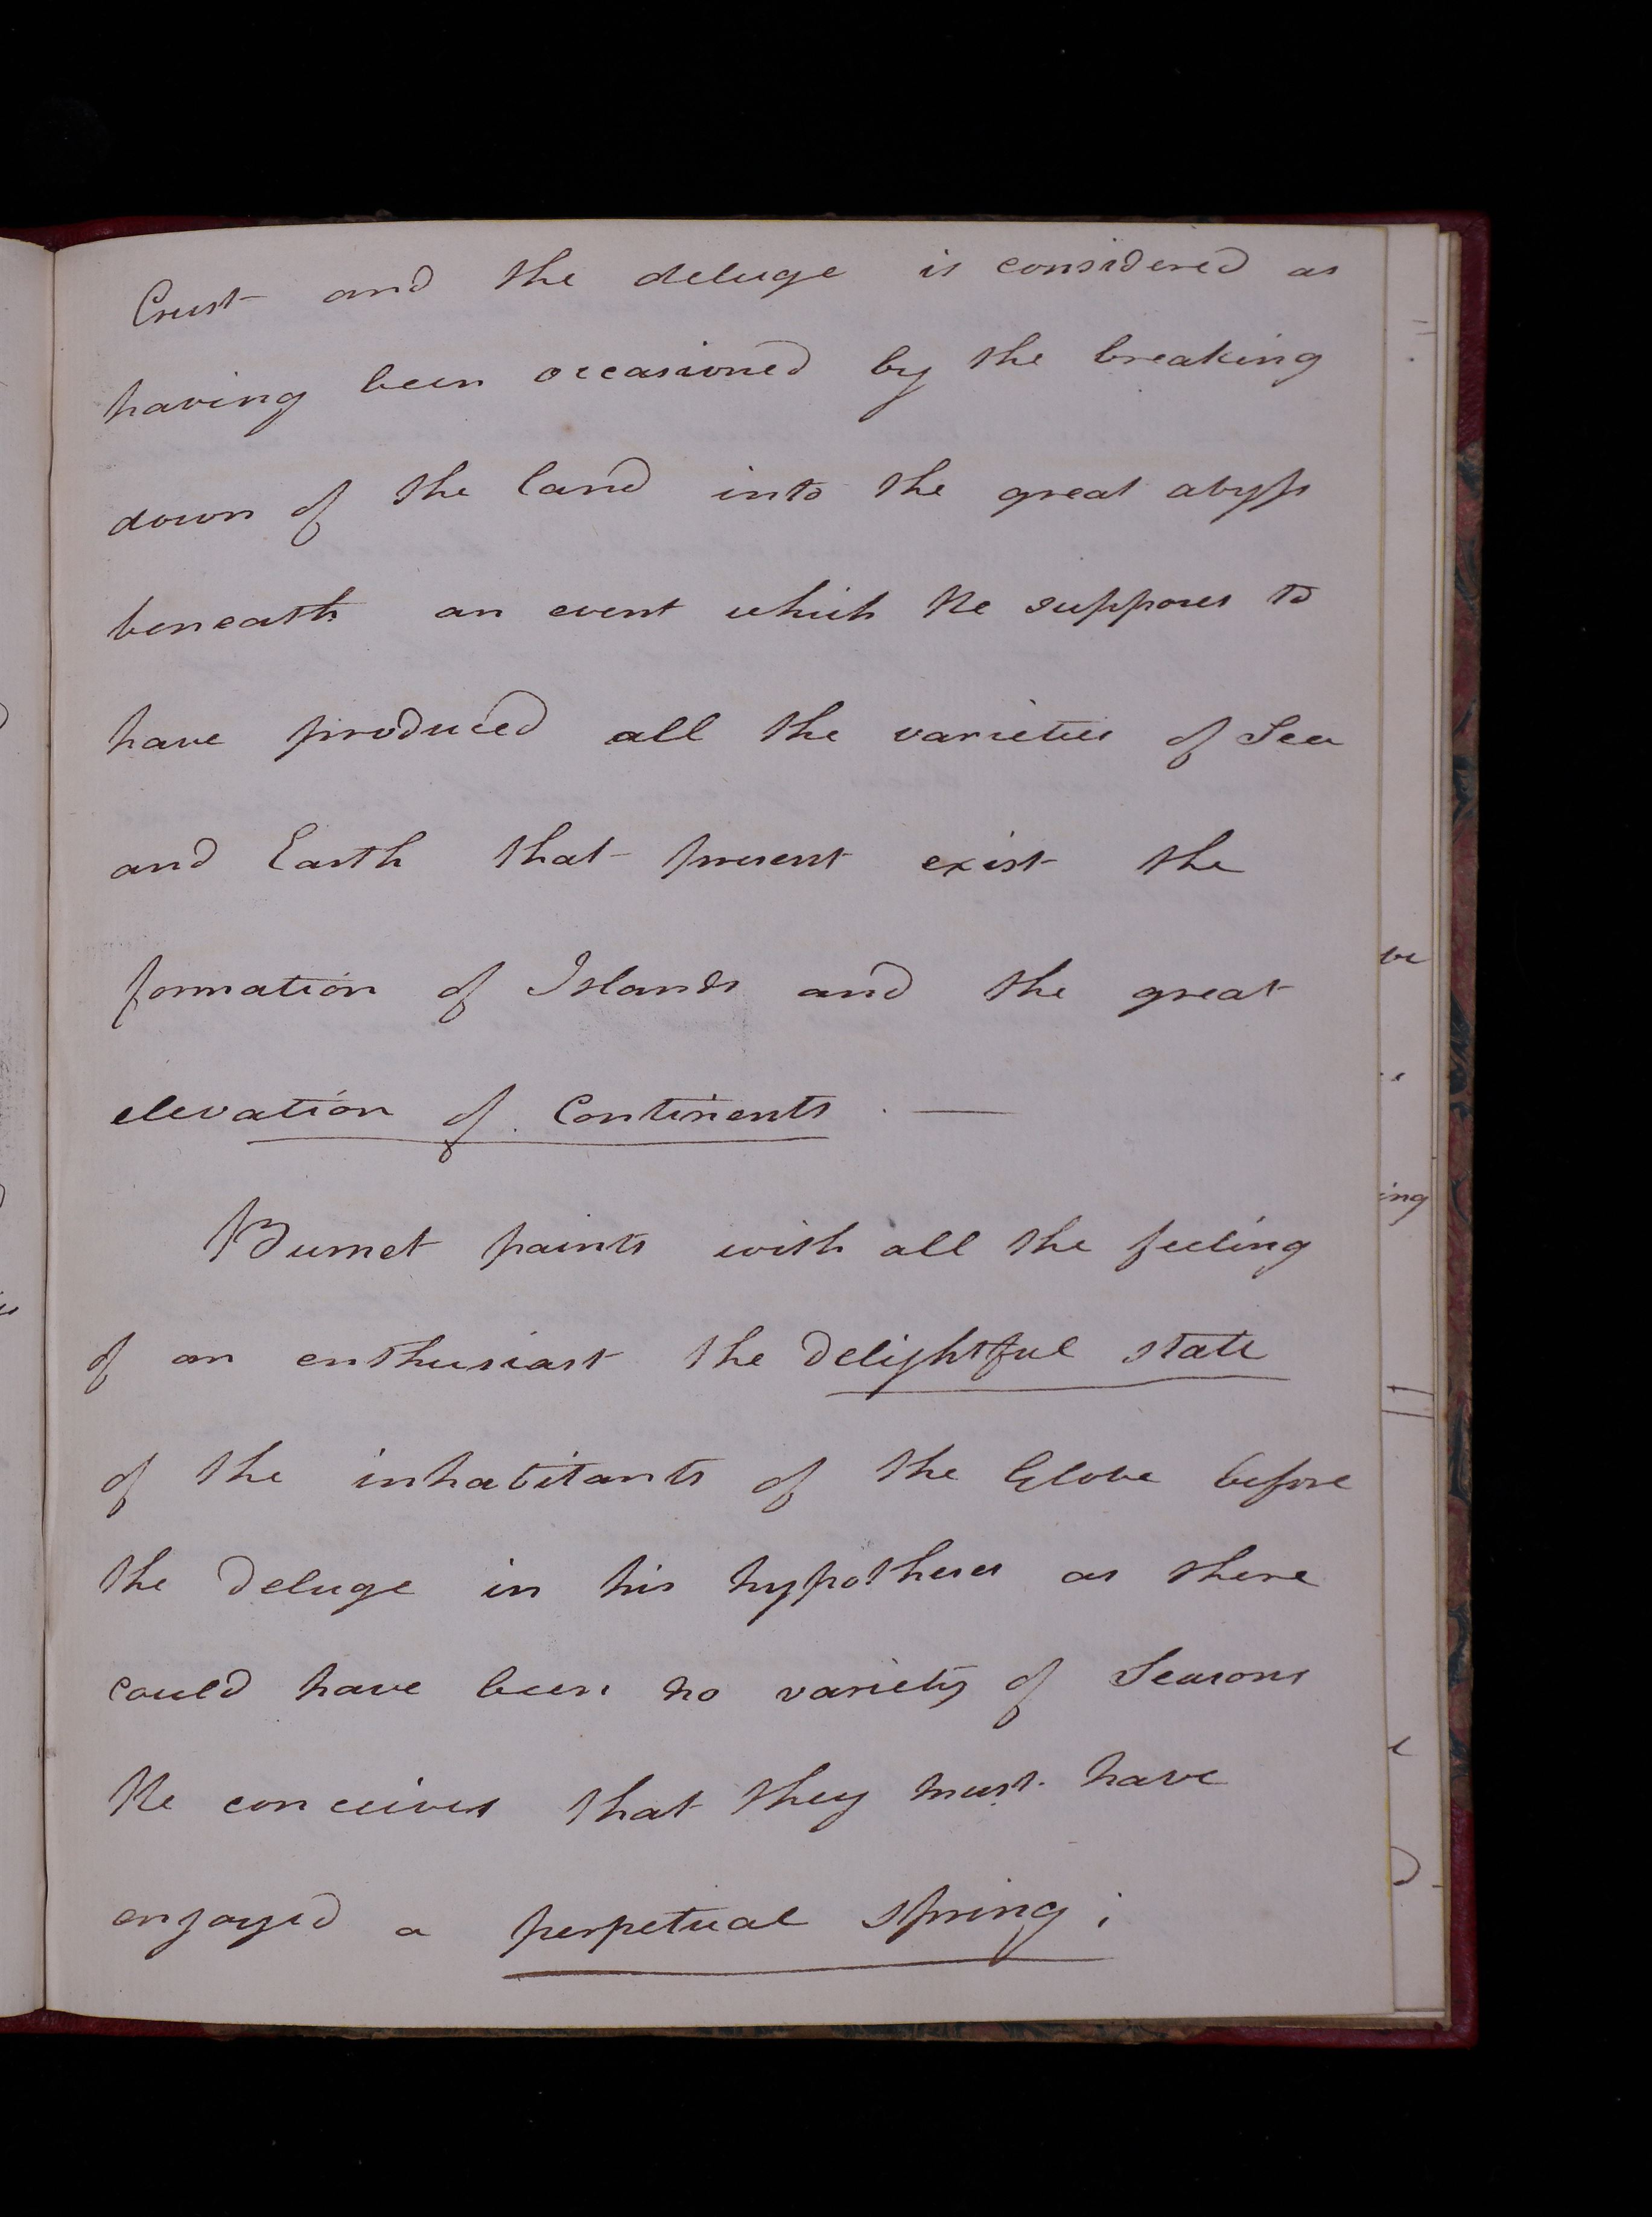 Crust and the deluge is considered as
having been occasioned by the breaking
down of the land into the great abyss
beneath an event which He supposes to
have produced all the varieties of Sea
and Earth that present exist the
formation of Islands and the great
elevation of Continents. —
Burnet paints with all the feeling
of an enthusiast the delightful state
of the inhabitants of the Globe before
the deluge in his hypotheses as there
could have been no variety of Seasons
He conceives that they must have
enjoyed a perpetual spring;
ing